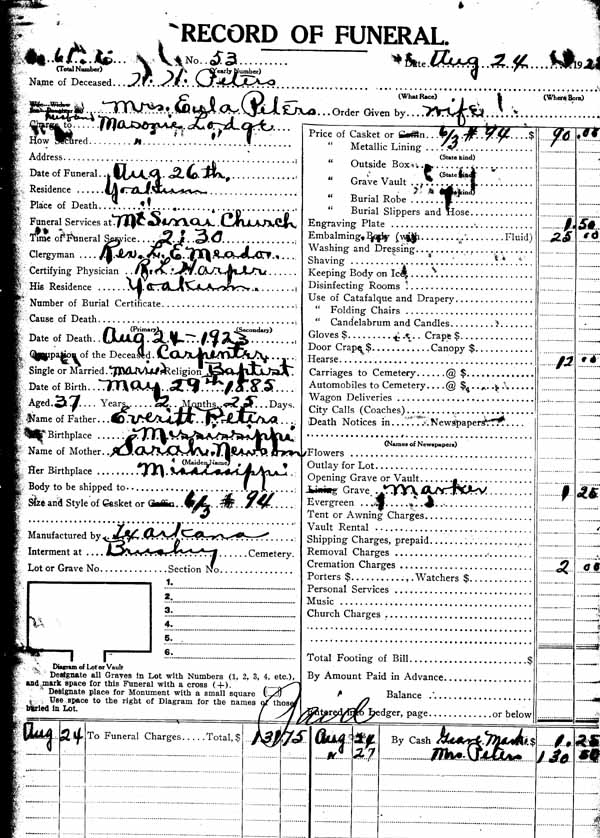 RECORD OF FUNERAL.
No. 53
Date Aug 24 192
(Total Number) (Yearly Number)
Name of Deceased W. W. Peters
(What Race) (Where Born)
Mrs. Eula Peters Order Given by Wife
husband
Charge to Masonic Lodge
How Secured
Address
Date of Funeral Aug 26th.
Residence Yoakum
Place of Death
Funeral Services at Mt Sinai Church
Time of Funeral Service 2:30
Clergyman Rev. L. E. Meador
Certifying Physician Harper
His Residence Yoakum
Number of Burial Certificate
Cause of Death
(Primary) (Secondary)
Date of Death Aug 24 - 1923
Occupation of the Deceased Carpenter
Single or Married Married Religion Baptist
Date of Birth May 29th 1885
Aged 37 Years 2 Months 25 Days.
Name of Father Everitt Peters
Birthplace Mississippi
Name of Mother Sarah Newsom
(Maiden Name)
Her Birthplace Mississippi
Body to be shipped to
Size and Style of Casket or Coffin 6/3 # 94
Manufactured by Texarkana
Interment at Brushy Cemetery.
Lot or Grave No. Section No.
1.
2.
3.
4.
5.
6.
Diagram of Lot or Vault
Designate all Graves in Lot with Numbers (1, 2, 3, 4, etc.),
and mark space for this Funeral with a cross (+).
Designate place for Monument with a small square
Use space to the right of Diagram for the names of those
buried in Lot.
Price of Casket or Coffin 6/3 # 94 $ 90.00
" Metallic Lining
(State kind)
" Outside Box
(State kind)
" Grave Vault
(State kind)
" Burial Robe
" Burial Slippers and Hose
Engraving Plate 1.50
Embalming Body (with Fluid) 25 00
Washing and Dressing
Shaving
Keeping Body on Ice
Disinfecting Rooms
Use of Catafalque and Drapery
" Folding Chairs
" Candelabrum and Candles
Gloves $ Crape $
Door Crape $ Canopy $
Hearse 12 00
Carriages to Cemetery @ $
Automobiles to Cemetery @ $
Wagon Deliveries
City Calls (Coaches)
Death Notices in Newspapers
(Names of Newspapers)
Flowers
Outlay for Lot
Opening Grave or Vault
Lining Grave Marker 1 25
Evergreen
Tent or Awning Charges
Vault Rental
Shipping Charges, prepaid
Removal Charges
Cremation Charges 2 00
Porters $ Watchers $
Personal Services
Music
Church Charges
Total Footing of Bill $
By Amount Paid in Advance
" Balance
Entered into Ledger, page or below
Paid
Aug 24 To Funeral Charges Total, $ 131 75
Aug 24 By Cash Grave Mark $ 1.25
" 27 Mrs. Peters 130 50